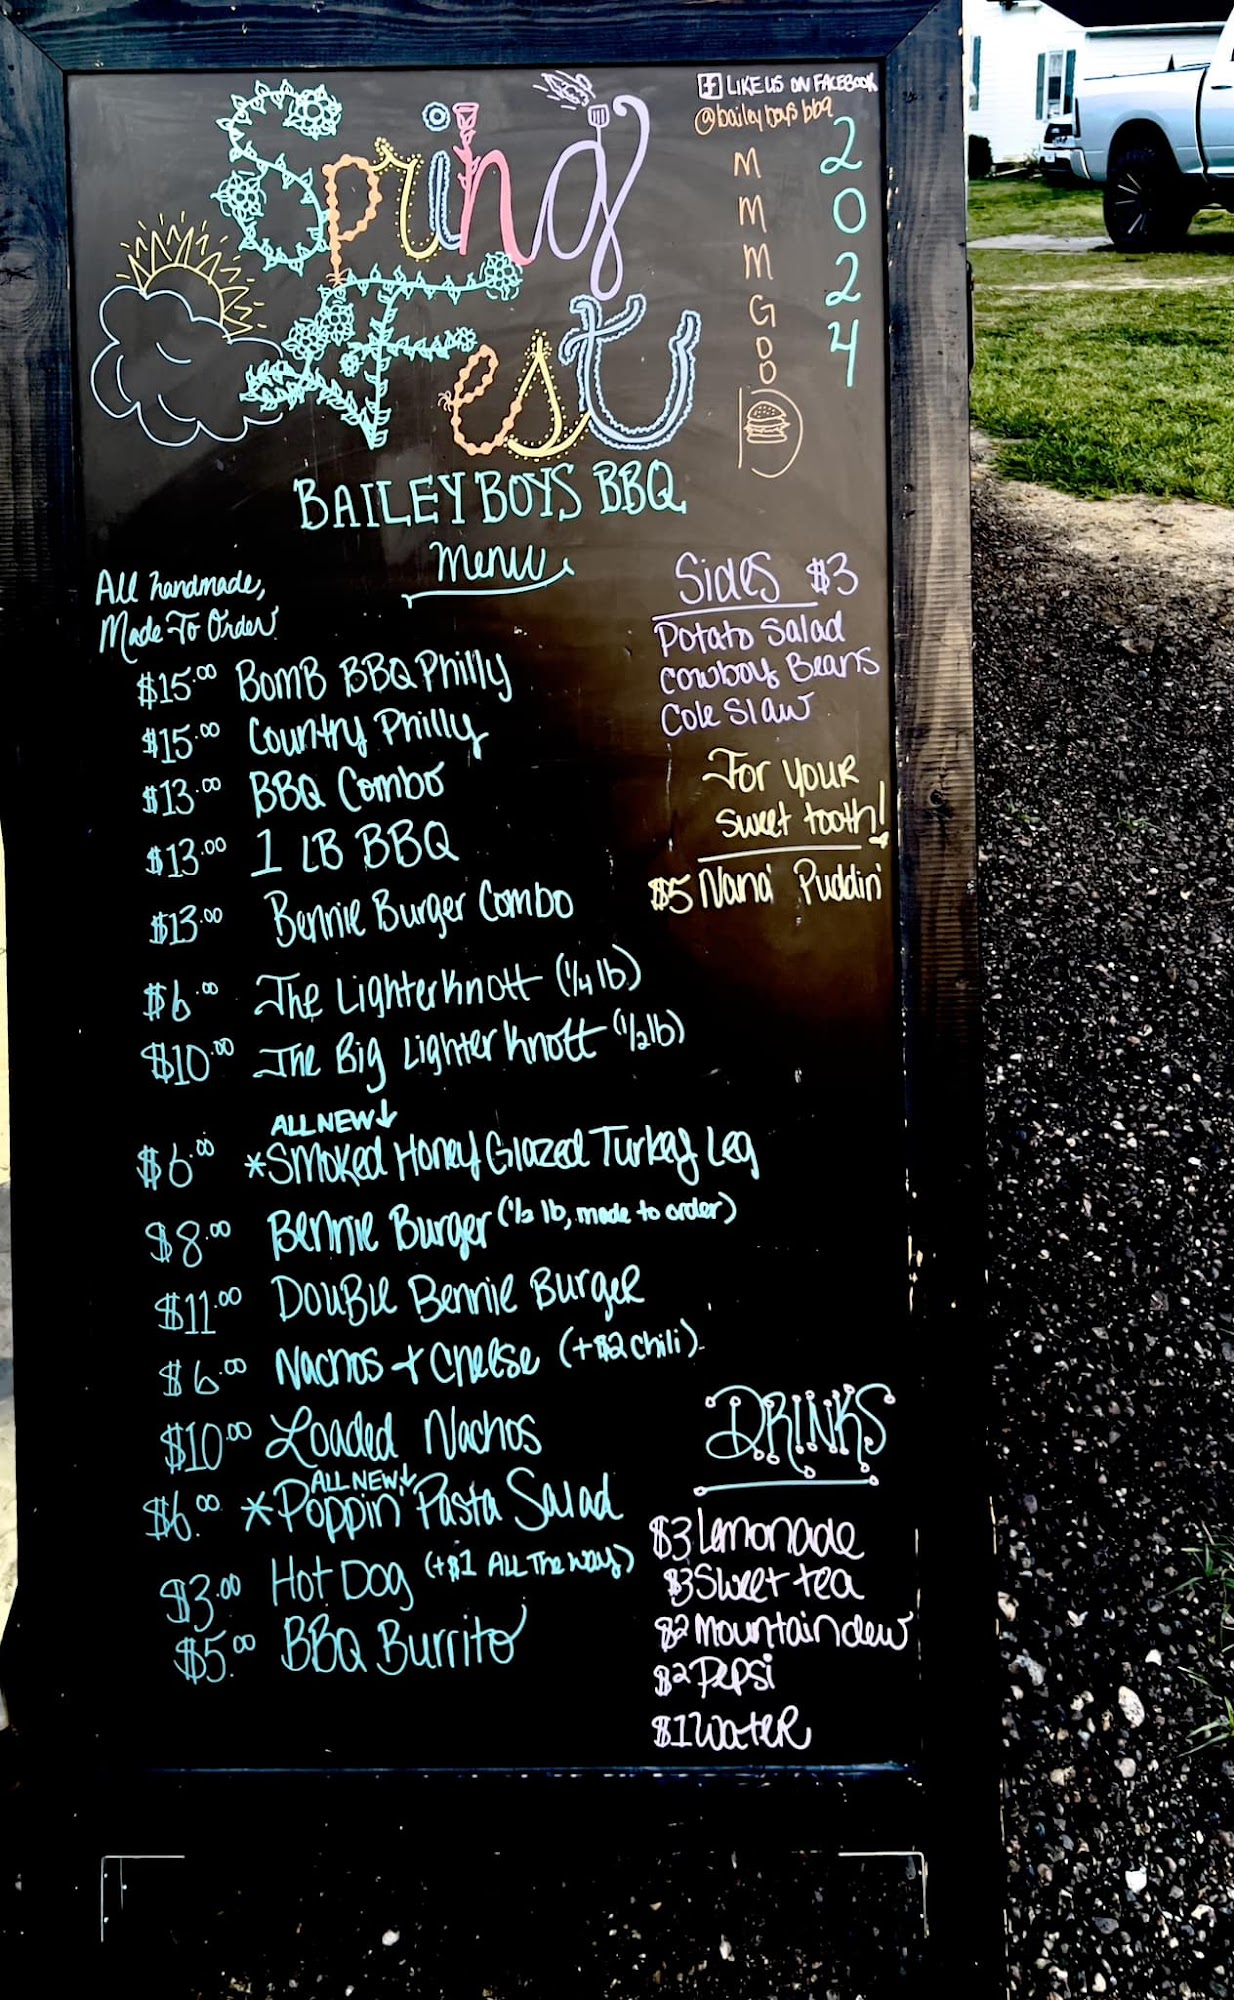 LIKE US ON FACEBOOK
@baileyboysbbq
Spring
Fest
2024
MMMGOOD
BAILEY BOYS BBQ
Menu
All handmade,
Made To Order
$15.00 BOMB BBQ Philly
$15.00 Country Philly
$13.00 BBQ Combo
$13.00 1 LB BBQ
$13.00 Bennie Burger Combo
$6.00 The Lighterknott (1/4 lb)
$10.00 The Big Lighter Knott (1/2 lb)
ALL NEW↓
$6.00 *Smoked Honey Glazed Turkey Leg
$8.00 Bennie Burger (1/2 lb, made to order)
$11.00 Double Bennie Burger
$6.00 Nachos + Cheese (+$2 chili)
$10.00 Loaded Nachos
ALL NEW↓
$6.00 *Poppin' Pasta Salad
$3.00 Hot Dog (+$1 ALL The Way)
$5.00 BBQ Burrito
Sides $3
Potato Salad
Cowboy Beans
Cole Slaw
For your
sweet tooth!
$5 Nana' Puddin'
DRINKS
$3 Lemonade
$3 Sweet tea
$2 Mountain dew
$2 Pepsi
$1 Water